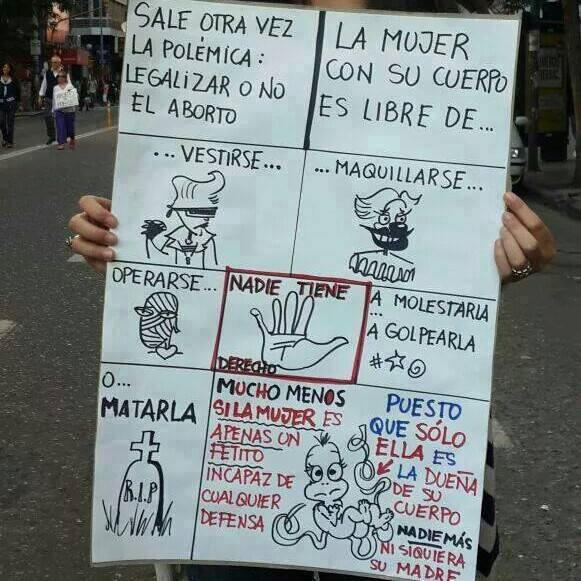 SALE OTRA VEZ
LA POLÉMICA:
LEGALIZAR O NO
EL ABORTO
LA MUJER
CON SU CUERPO
ES LIBRE DE...
... VESTIRSE...
... MAQUILLARSE...
OPERARSE...
NADIE TIENE
DERECHO
A MOLESTARLA
...
A GOLPEARLA
#☆@
O...
MATARLA
R.I.P
MUCHO MENOS
SI LA MUJER ES
APENAS UN
FETITO
INCAPAZ DE
CUALQUIER
DEFENSA
PUESTO
QUE SÓLO
ELLA ES
LA DUEÑA
DE SU
CUERPO
NADIE MÁS
NI SIQUIERA
SU MADRE